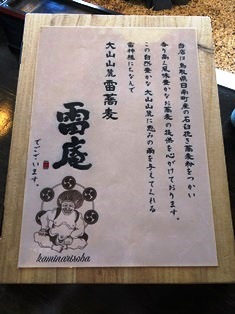 当店は鳥取県日南町産の石臼挽き蕎麦粉をつかい
香り高く風味豊かなお蕎麦の提供を心がけております。
この自然豊かな大山山麓に恵みの雨を与えてくれる
雷神様にちなんで
大山山麓 雷蕎麦
雷庵
でございます。
kaminarisoba